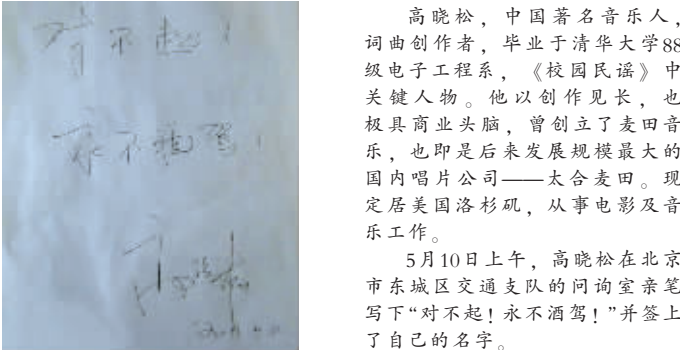 对不起！
永不酒驾！
高晓松，中国著名音乐人，
词曲创作者，毕业于清华大学88
级电子工程系，《校园民谣》中
关键人物。他以创作见长，也
极具商业头脑，曾创立了麦田音
乐，也即是后来发展规模最大的
国内唱片公司——太合麦田。现
定居美国洛杉矶，从事电影及音
乐工作。
5月10日上午，高晓松在北京
市东城区交通支队的问询室亲笔
写下“对不起！永不酒驾！”并签上
了自己的名字。